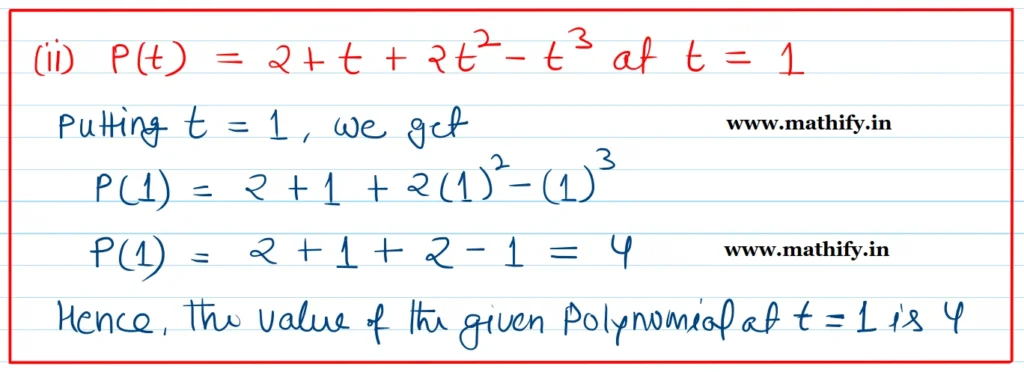 (ii) P(t) = 2 + t + 2t² - t³ at t = 1
Putting t = 1, we get
www.mathify.in
P(1) = 2 + 1 + 2(1)² - (1)³
P(1) = 2 + 1 + 2 - 1 = 4
www.mathify.in
Hence, the value of the given Polynomial at t = 1 is 4